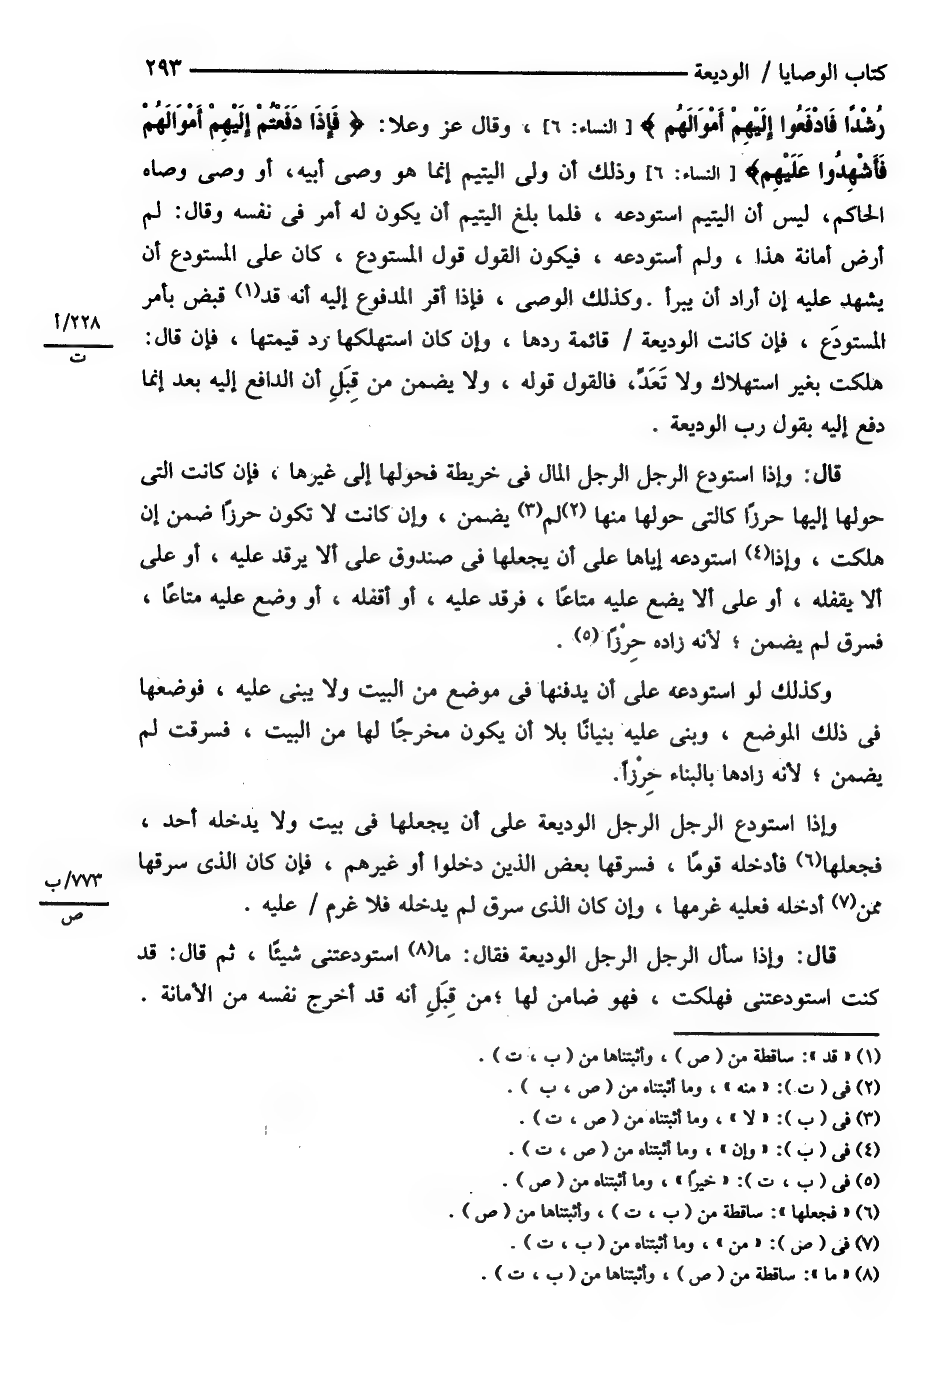 كتاب الوصايا / الوديعة ٢٩٣
رُشْدًا فَادْفَعُوا إِلَيْهِمْ أَمْوَالَهُم ﴾ [ النساء: ٦] ، وقال عز وعلا: ﴿ فَإِذَا دَفَعْتُمْ إِلَيْهِمْ أَمْوَالَهُمْ
فَأَشْهِدُوا عَلَيْهِم﴾ [ النساء: ٦] وذلك أن ولى اليتيم إنما هو وصى أبيه، أو وصى وصاه
الحاكم، ليس أن اليتيم استودعه ، فلما بلغ اليتيم أن يكون له أمر فى نفسه وقال: لم
أرض أمانة هذا ، ولم أستودعه ، فيكون القول قول المستودع ، كان على المستودع أن
يشهد عليه إن أراد أن يبرأ .وكذلك الوصى ، فإذا أقر المدفوع إليه أنه قد(١) قبض بأمر
المستودَع ، فإن كانت الوديعة / قائمة ردها ، وإن كان استهلكها رد قيمتها ، فإن قال:
٢٢٨/أ
ت
هلكت بغير استهلاك ولا تَعَدٍّ، فالقول قوله ، ولا يضمن من قِبَلِ أن الدافع إليه بعد إنما
دفع إليه بقول رب الوديعة .
قال: وإذا استودع الرجل الرجل المال فى خريطة فحولها إلى غيرها ، فإن كانت التى
حولها إليها حرزًا كالتى حولها منها (٢)لم(٣) يضمن ، وإن كانت لا تكون حرزًا ضمن إن
هلكت ، وإذا(٤) استودعه إياها على أن يجعلها فى صندوق على ألا يرقد عليه ، أو على
ألا يقفله ، أو على ألا يضع عليه متاعًا ، فرقد عليه ، أو أقفله ، أو وضع عليه متاعًا ،
فسرق لم يضمن ؛ لأنه زاده حِرْزًا (٥) .
وكذلك لو استودعه على أن يدفنها فى موضع من البيت ولا يبنى عليه ، فوضعها
فى ذلك الموضع ، وبنى عليه بنيانًا بلا أن يكون مخرجًا لها من البيت ، فسرقت لم
يضمن ؛ لأنه زادها بالبناء حِرْزًا.
وإذا استودع الرجل الرجل الوديعة على أن يجعلها فى بيت ولا يدخله أحد ،
فجعلها(٦) فأدخله قومًا ، فسرقها بعض الذين دخلوا أو غيرهم ، فإن كان الذى سرقها
٧٧٣/ب
ص
ممن(٧) أدخله فعليه غرمها ، وإن كان الذى سرق لم يدخله فلا غرم / عليه .
قال: وإذا سأل الرجل الرجل الوديعة فقال: ما(٨) استودعتنى شيئًا ، ثم قال: قد
كنت استودعتنى فهلكت ، فهو ضامن لها ؛من قِبَلِ أنه قد أخرج نفسه من الأمانة .
(١) « قد »: ساقطة من ( ص ) ، وأثبتناها من ( ب ، ت ) .
(٢) فى ( ت ): « منه » ، وما أثبتناه من ( ص ، ب ) .
(٣) فى ( ب ): « لا » ، وما أثبتناه من ( ص ، ت ) .
(٤) فى ( ب ): « وإن » ، وما أثبتناه من ( ص ، ت ) .
(٥) فى ( ب ، ت ): « خيرًا » ، وما أثبتناه من ( ص ) .
(٦) « فجعلها »: ساقطة من ( ب ، ت ) ، وأثبتناها من ( ص ) .
(٧) فى ( ص ): « من » ، وما أثبتناه من ( ب ، ت ) .
(٨) « ما »: ساقطة من ( ص ) ، وأثبتناها من ( ب ، ت ) .